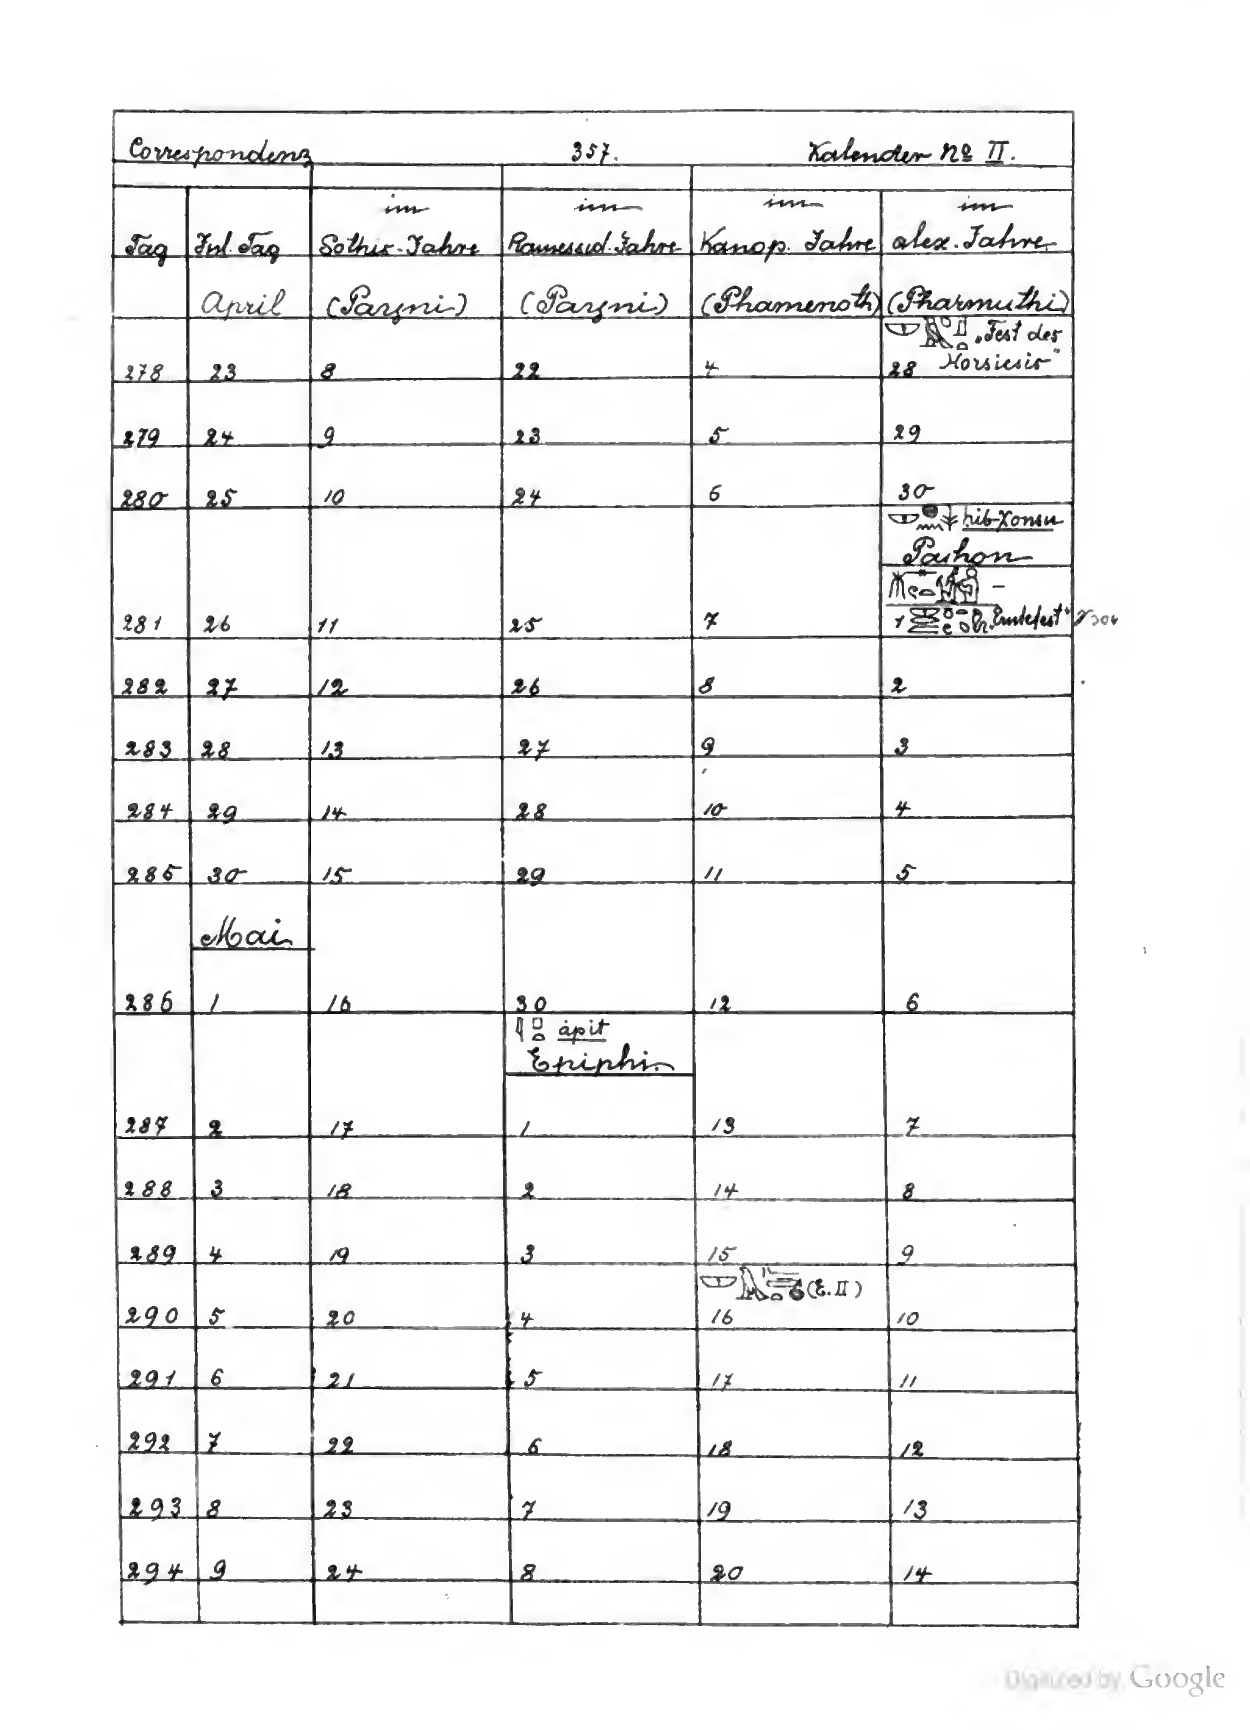 Correspondenz 357. Kalender No II.
im im im im
Tag Jul. Tag Sothis-Jahre Ramessid. Jahre Kanop. Jahre alex. Jahre
April (Payni) (Payni) (Phamenoth) (Pharmuthi)
„Fest des
278 23 8 22 4 28 Horsiesis“
279 24 9 23 5 29
280 25 10 24 6 30
hib-Xonsu
Pachon
281 26 11 25 7 1 „Erntefest“
282 27 12 26 8 2
283 28 13 27 9 3
284 29 14 28 10 4
285 30 15 29 11 5
Mai
286 1 16 30 12 6
apit
Epiphi
287 2 17 1 13 7
288 3 18 2 14 8
289 4 19 3 15 9
(E. II)
290 5 20 4 16 10
291 6 21 5 17 11
292 7 22 6 18 12
293 8 23 7 19 13
294 9 24 8 20 14
Digitized by Google